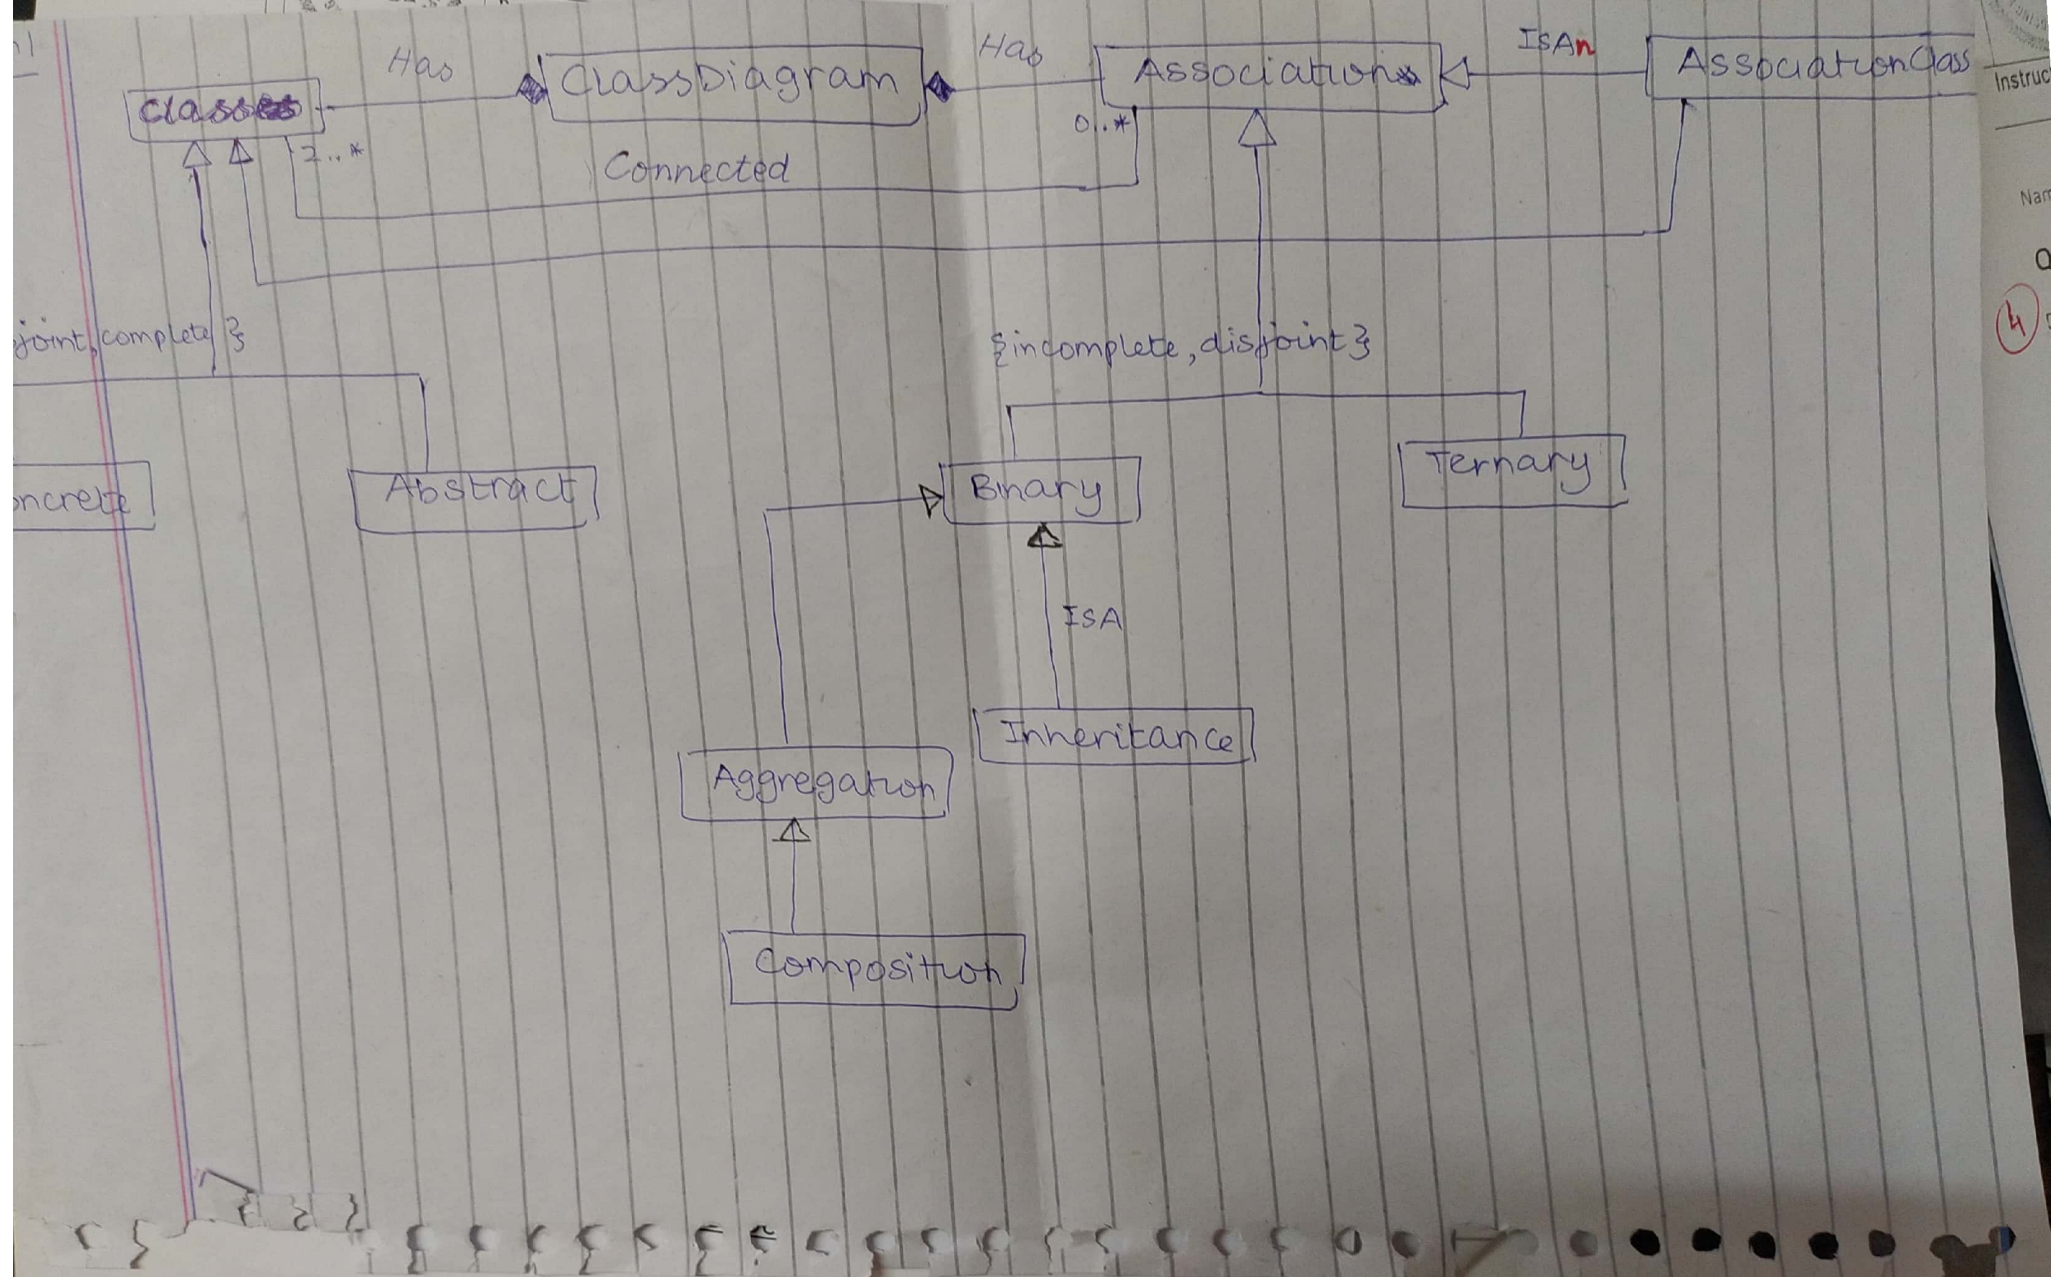 Has
Has
ISAn
Class
ClassDiagram
Association
AssociationClass
Instruc
0..*
2..*
Connected
Nam
joint, complete }
{incomplete, disjoint}
4
oncrete
Abstract
Binary
Ternary
ISA
Inheritance
Aggregation
Composition